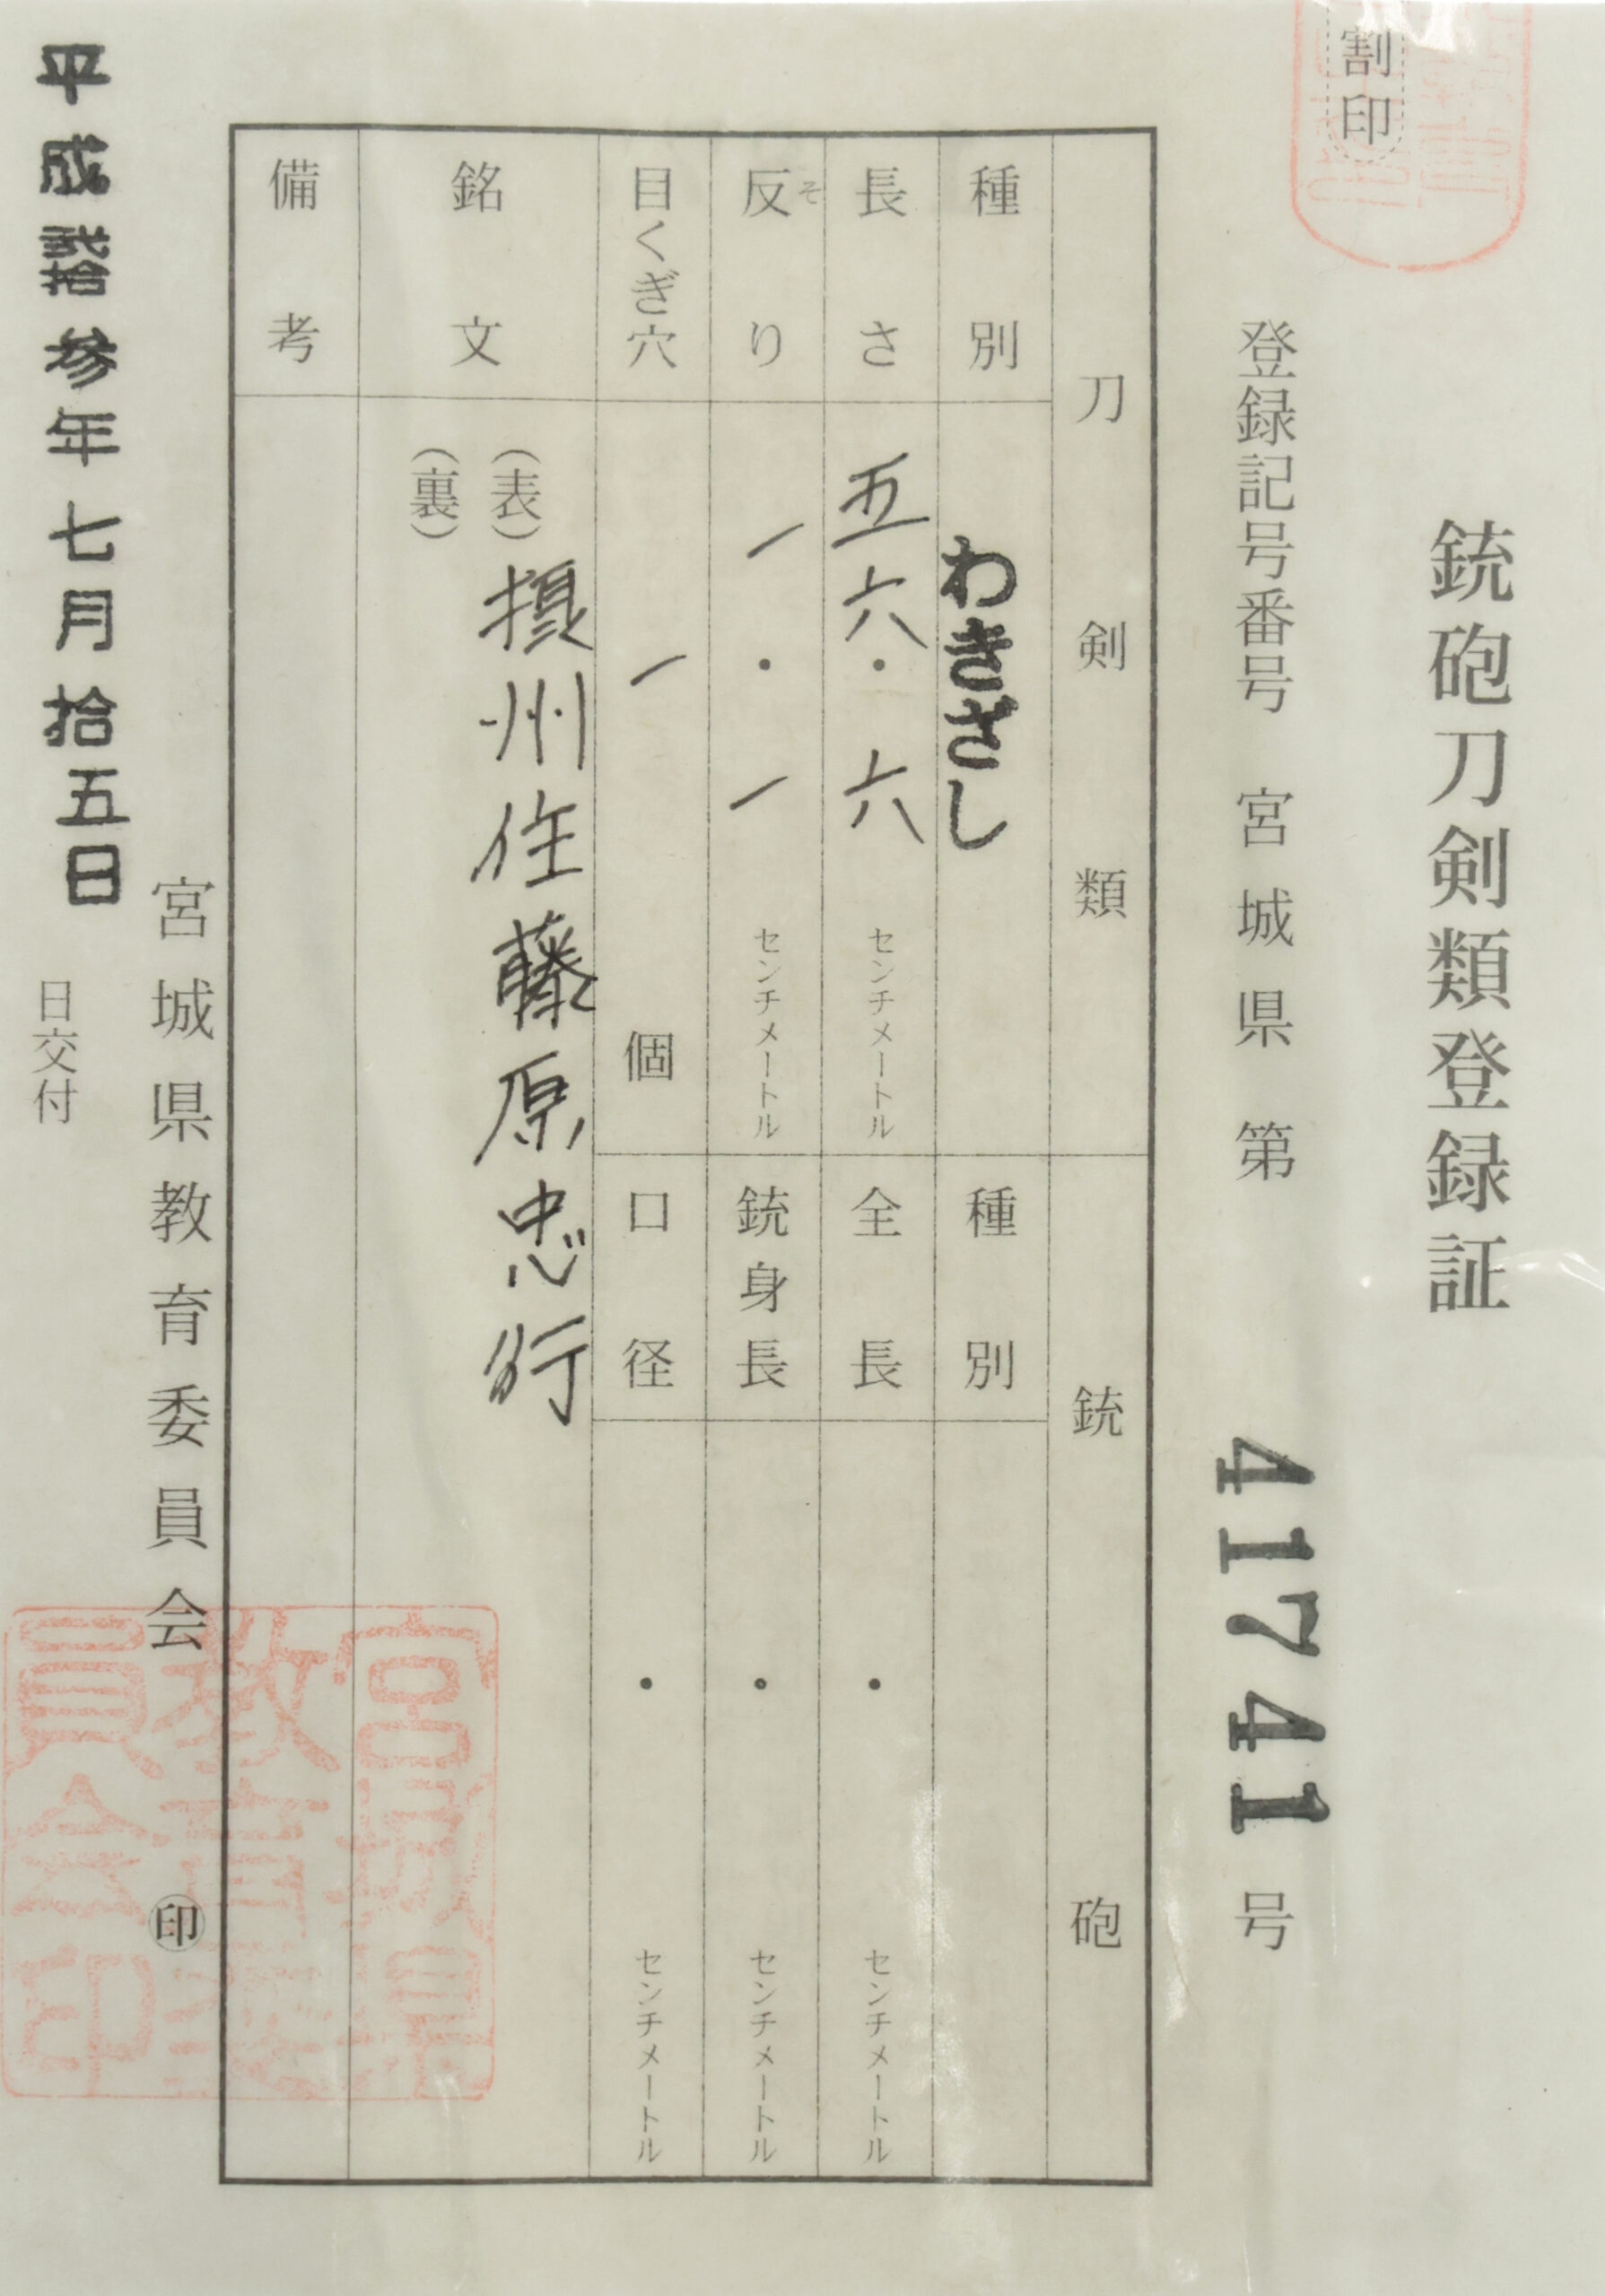 割印
銃砲刀剣類登録証
登録記号番号 宮城県 第 41741 号
刀剣類
銃砲
種別 わきざし
種別
長さ 五六・六 センチメートル
全長 ・ センチメートル
反り そ 一・一 センチメートル
銃身長 ・ センチメートル
目くぎ穴 一 個
口径 ・ センチメートル
銘文 (表) 摂州住藤原忠行
(裏)
備考
宮城県教育委員会 印
宮城県教育委員会印
平成弐拾参年七月拾五日
日交付